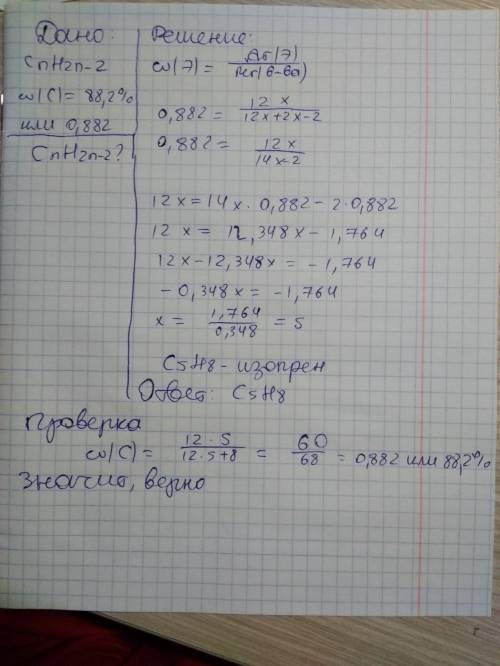 Дано:
CnH2n-2
ω(C)= 88,2%
или 0,882
CnH2n-2?
Решение:
ω(э)= Ar(э)/Mr(в-ва)
0,882 = 12x/12x+2x-2
0,882 = 12x/14x-2
12x=14x·0,882-2·0,882
12x = 12,348x-1,764
12x-12,348x = -1,764
-0,348x = -1,764
x = 1,764/0,348 = 5
C5H8-изопрен
Ответ: C5H8
Проверка
ω(C) = 12·5/12·5+8 = 60/68 = 0,882 или 88,2%
Значит, верно